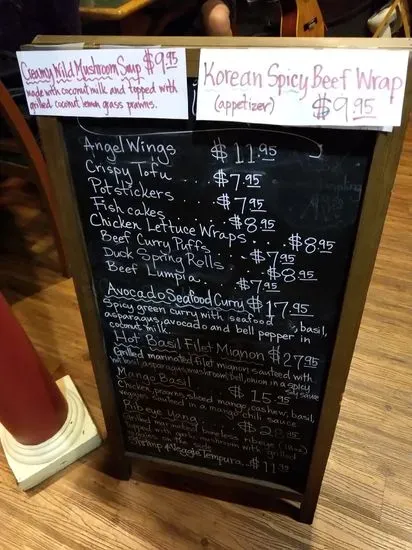 Creamy Wild Mushroom Soup $9.95
made with coconut milk and topped with
grilled coconut lemon grass prawns.
Korean Spicy Beef Wrap
(appetizer) $9.95
Angel Wings $11.95
Crispy Tofu ... $7.95
Potstickers ... $7.95
Fish cakes ... $8.95
Chicken Lettuce Wraps... $8.95
Beef Curry Puffs ... $7.95
Duck Spring Rolls .. $8.95
Beef Lumpia. $7.95
Avocado Seafood Curry $17.95
Spicy green curry with seafood, basil,
asparagus, avocado and bell pepper in
coconut milk.
Hot Basil Filet Mignon $27.95
Grilled marinated filet mignon sauteed with
basil, asparagus, mushroom, bell, onion in a spicy
soy sauce
Mango Basil $15.95
Chicken, prawns, sliced mango, cashew, basil,
veggies sauteed in a mango chili sauce
Ribeye Yang $28
Grilled marinated boneless ribeye
mushroom with grilled
on the side
Shrimp & Veggie Tempura... $11.95